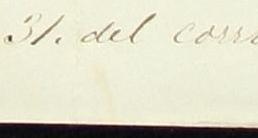 31. del corr